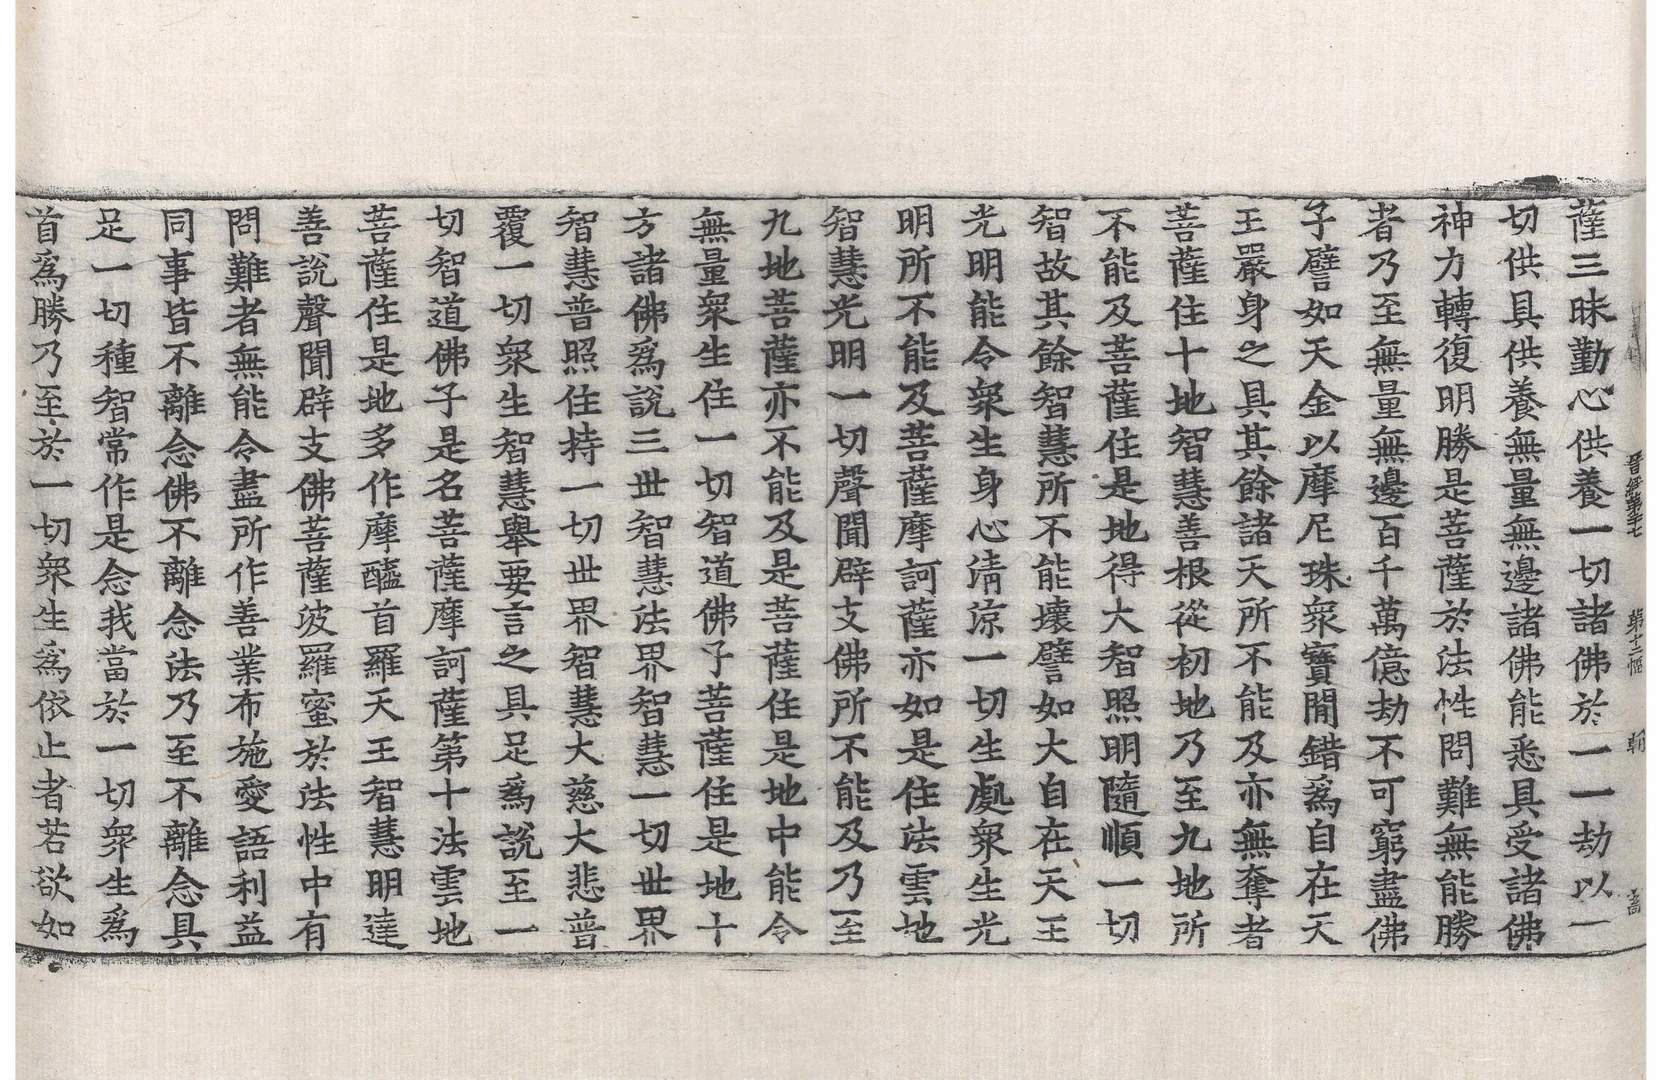 薩三昧勤心供養一切諸佛於一一劫以一
切供具供養無量無邊諸佛能悉具受諸佛
神力轉復明勝是菩薩於法性問難無能勝
者乃至無量無邊百千萬億劫不可窮盡佛
子譬如天金以摩尼珠衆寶閒錯爲自在天
王嚴身之具其餘諸天所不能及亦無奪者
菩薩住十地智慧善根從初地乃至九地所
不能及菩薩住是地得大智照明隨順一切
智故其餘智慧所不能壞譬如大自在天王
光明能令衆生身心清涼一切生處衆生光
明所不能及菩薩摩訶薩亦如是住法雲地
智慧光明一切聲聞辟支佛所不能及乃至
九地菩薩亦不能及是菩薩住是地中能令
無量衆生住一切智道佛子菩薩住是地十
方諸佛爲說三世智慧法界智慧一切世界
智慧普照住持一切世界智慧大慈大悲普
覆一切衆生智慧舉要言之具足爲說至一
切智道佛子是名菩薩摩訶薩第十法雲地
菩薩住是地多作摩醯首羅天王智慧明達
善說聲聞辟支佛菩薩波羅蜜於法性中有
問難者無能令盡所作善業布施愛語利益
同事皆不離念佛不離念法乃至不離念具
足一切種智常作是念我當於一切衆生爲
首爲勝乃至於一切衆生爲依止者若欲如
晉經第二十七 第十二幅